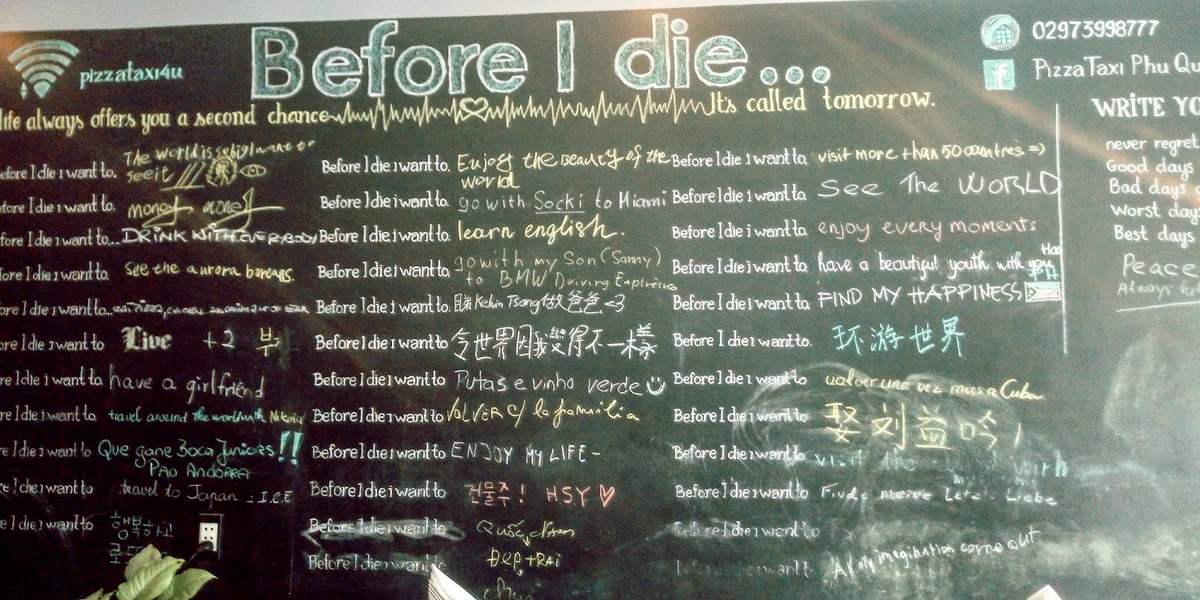 pizzataxi4u
Before I die...
02973998777
PizzaTaxi Phu Qu
life always offers you a second chance
It's called tomorrow.
WRITE YO
never regret
Good days
Bad days
Worst day
Best days
Peace
Always
efore I die I want to. The world is
see it
Before I die I want to. Enjoy the Beauty of the
world
Before I die I want to. visit more than 50 countries =)
efore I die I want to. money money
Before I die I want to. go with Socki to Miami
Before I die I want to. See The WORLD
fore I die I want to... DRINK WITH EVERYBODY
Before I die I want to. learn english.
Before I die I want to. enjoy every moments
fore I die I want to. See the aurora boreans.
Before I die I want to. go with my Son (Sammy)
to BMW Driving Experience
Before I die I want to. have a beautiful youth with you
fore I die I want to...
Before I die I want to. Kelvin Tsang做爸爸<3
Before I die I want to. FIND MY HAPPINESS
ore I die I want to Live +2 부
Before I die I want to 令世界因我變得不一樣
Before I die I want to. 环游世界
re I die I want to have a girlfriend
Before I die I want to Putas e vinho verde
Before I die I want to volver una vez mas a Cuba
re I die I want to travel around the world with
Before I die I want to VOLVER C/ la familia
Before I die I want to 娶刘益吟
re I die I want to Que gane Boca Juniors!!
PAO ANDORRA
Before I die I want to ENJOY MY LIFE-
Before I die I want to visit the with
re I die I want to travel to Japan - I.C.E
Before I die I want to 건물주! HSY
Before I die I want to Finde meine Liebe
e I die I want to 행복하고
Before I die I want to Quốc
Before I die I want to
Before I die I want to ĐẸP+TRAI
I die I want t. All my imagination come out